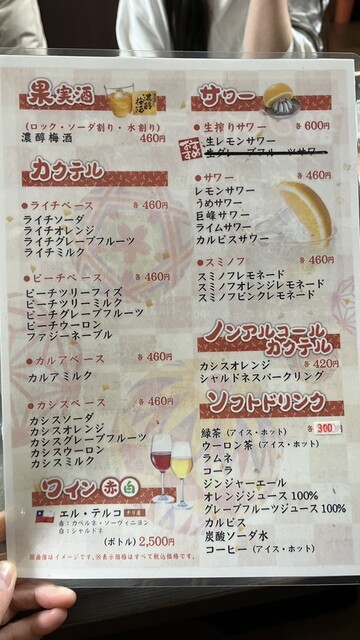 果実酒
濃醇梅酒
(ロック・ソーダ割り・水割り)
濃醇梅酒 460円
カクテル
●ライチベース 各460円
ライチソーダ
ライチオレンジ
ライチグレープフルーツ
ライチミルク
●ピーチベース 各460円
ピーチツリーフィズ
ピーチツリーミルク
ピーチグレープフルーツ
ピーチウーロン
ファジーネーブル
●カルアベース 各460円
カルアミルク
●カシスベース 各460円
カシスソーダ
カシスオレンジ
カシスグレープフルーツ
カシスウーロン
カシスミルク
ワイン 赤 白
エル・テルコ チリ産
赤:カベルネ・ソーヴィニヨン
白:シャルドネ
(ボトル) 2,500円
※画像はイメージです。※表示価格はすべて税込価格です。
サワー
●生搾りサワー 各600円
おすすめ
生レモンサワー
生グレープフルーツサワー
●サワー 各460円
レモンサワー
うめサワー
巨峰サワー
ライムサワー
カルピスサワー
●スミノフ 各460円
スミノフレモネード
スミノフオレンジレモネード
スミノフピンクレモネード
ノンアルコール
カクテル
カシスオレンジ 各420円
シャルドネスパークリング
ソフトドリンク
各300円
緑茶(アイス・ホット)
ウーロン茶(アイス・ホット)
ラムネ
コーラ
ジンジャーエール
オレンジジュース100%
グレープフルーツジュース100%
カルピス
炭酸ソーダ水
コーヒー(アイス・ホット)